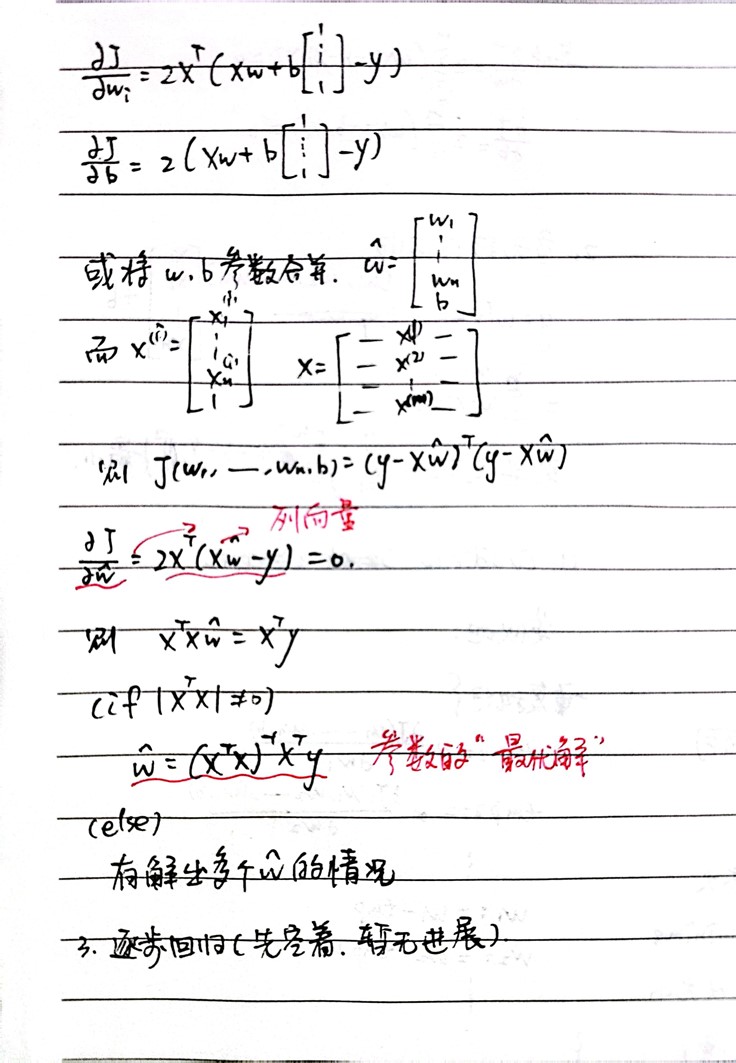 ∂J/∂wᵢ = 2Xᵀ(Xw + b[1 ⋮ 1] - y)
∂J/∂b = 2(Xw + b[1 ⋮ 1] - y)
或将 w, b 参数合并. ŵ = [w₁ ⋮ wₙ b]
而 x⁽ⁱ⁾ = [x₁⁽ⁱ⁾ ⋮ xₙ⁽ⁱ⁾ 1] X = [— x⁽¹⁾ — — x⁽²⁾ — — ⋮ — — x⁽ᵐ⁾ —]
则 J(w₁, —, wₙ, b) = (y - Xŵ)ᵀ(y - Xŵ)
列向量
∂J/∂ŵ = 2Xᵀ(Xŵ - y) = 0.
则 XᵀXŵ = Xᵀy
(if |XᵀX| ≠ 0)
ŵ = (XᵀX)⁻¹Xᵀy 参数的“最优解”
(else)
有解出多个ŵ的情况
3. 逐步回归(先空着, 暂无进展).